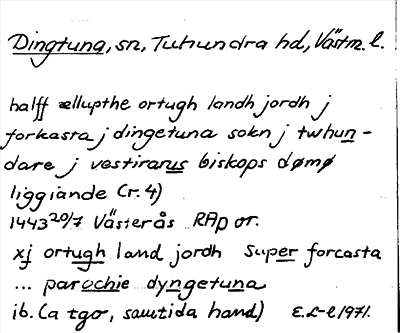 Dingtuna, sn, Tuhundra hd, Västm. l.
halff ællupthe ortugh landh jordh j
forkasta j dingetuna sokn j twhun-
dare j vestirarus biskops dømø
liggiande (r. 4)
1443 20/7 Västerås RAp or.
xj ortugh land jordh super forcasta
... parochie dyngetuna
ib. (a tgo, samtida hand) E.L-l 1971.